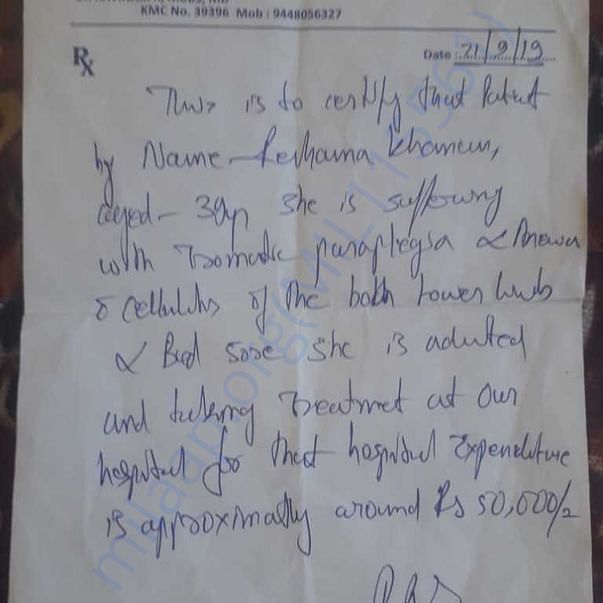 KMC No. 39396 Mob : 9448056327
Rx
Date : 21/9/19
This is to certify that Patient
by Name - Khanum,
aged - 39yr She is suffering
with Tromatic paraplegia & Anemia
& cellulitis of the both lower limb
& Bed sore she is admitted
and taking Treatment at our
hospital for that hospital Expenditure
is approximally around Rs 50,000/-
milaap.org